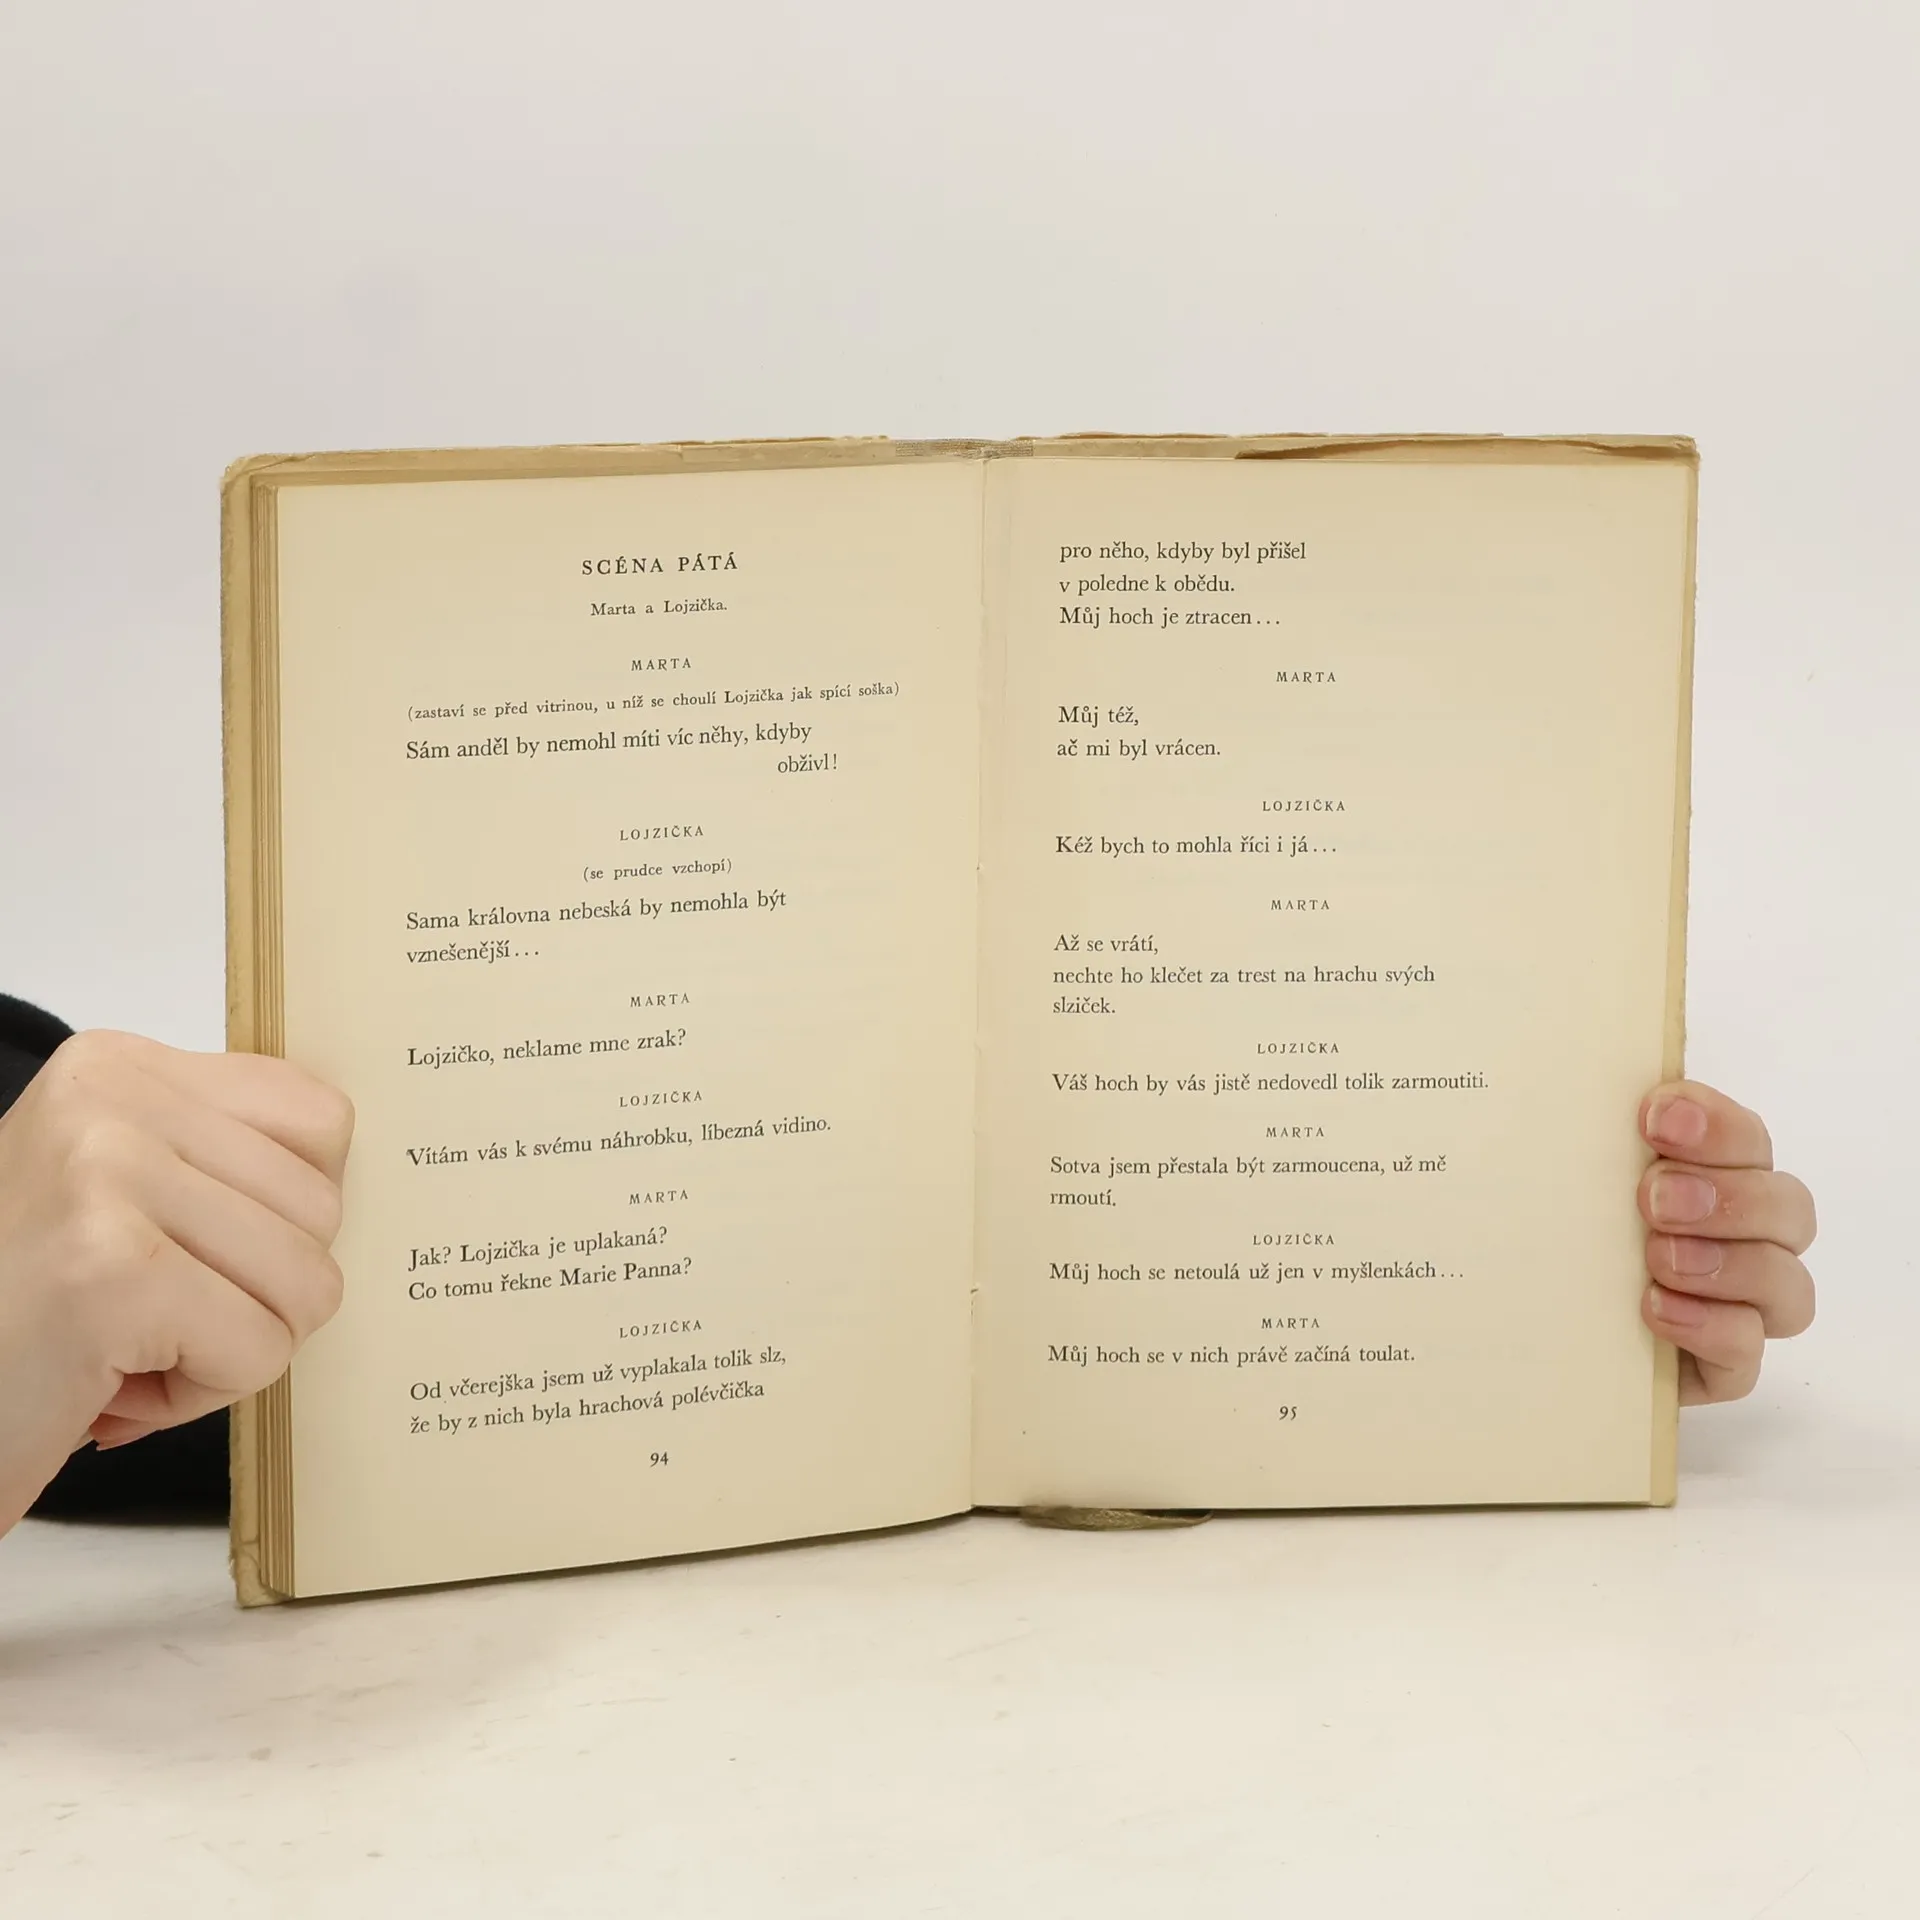 SCÉNA PÁTÁ
Marta a Lojzička.
MARTA
(zastaví se před vitrinou, u níž se choulí Lojzička jak spící soška)
Sám anděl by nemohl míti víc něhy, kdyby
obživl!
LOJZIČKA
(se prudce vzchopí)
Sama královna nebeská by nemohla být
vznešenější...
MARTA
Lojzičko, neklame mne zrak?
LOJZIČKA
Vítám vás k svému náhrobku, líbezná vidino.
MARTA
Jak? Lojzička je uplakaná?
Co tomu řekne Marie Panna?
LOJZIČKA
Od včerejška jsem už vyplakala tolik slz,
že by z nich byla hrachová polévčička
94
pro něho, kdyby byl přišel
v poledne k obědu.
Můj hoch je ztracen...
MARTA
Můj též,
ač mi byl vrácen.
LOJZIČKA
Kéž bych to mohla říci i já...
MARTA
Až se vrátí,
nechte ho klečet za trest na hrachu svých
slziček.
LOJZIČKA
Váš hoch by vás jistě nedovedl tolik zarmoutiti.
MARTA
Sotva jsem přestala být zarmoucena, už mě
rmoutí.
LOJZIČKA
Můj hoch se netoulá už jen v myšlenkách...
MARTA
Můj hoch se v nich právě začíná toulat.
95